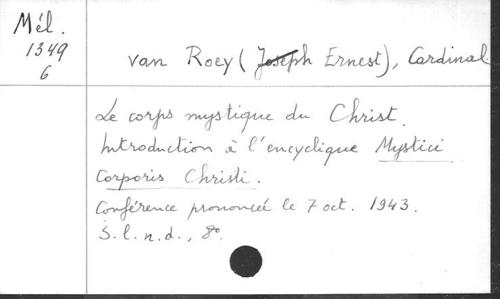 Mél.
1349
6
van Roey (Joseph Ernest), Cardinal
Le corps mystique du Christ.
Introduction à l'encyclique Mystici
Corporis Christi.
Conférence prononcée le 7 oct. 1943.
S.l.n.d., 8°.